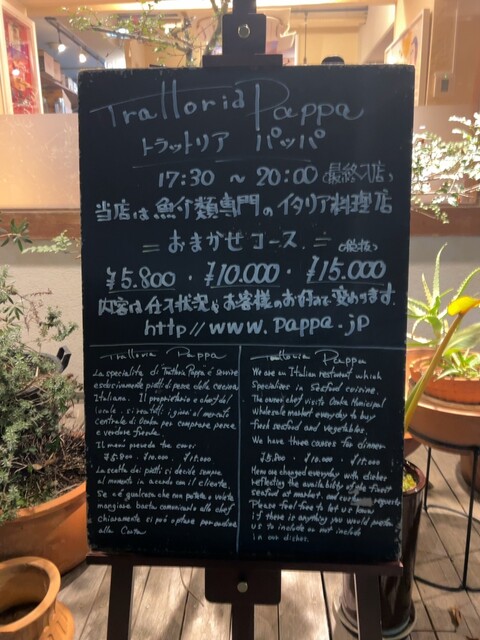 Trattoria Pappa
トラットリア パッパ
17:30 ~ 20:00 (最終入店)
当店は魚介類専門のイタリア料理店
= おまかせコース = (税抜)
¥5.800 ・ ¥10.000 ・ ¥15.000
内容は仕入状況やお客様のお好みで変わります.
http://www.pappa.jp
Trattoria Pappa
La specialita di Trattoria Pappa é servire
esclusivamente piatti di pesce della cucina
Italiana. Il proprietario e chef del
locale si reca tutti i giorni al mercato
centrale di Osaka per comprare pesce
e verdure fresche.
Il menù prevede tre corsi
¥5.800 ¥10.000 ¥15.000
La scelta dei piatti si decide sempre
al momento in accordo con il cliente.
Se c'é qualcosa che non potete o volete
mangiare basta comunicarlo allo chef
chiaramente si può optare per
alla Carta
Trattoria Pappa
We are an Italian restaurant which
Specializes in Seafood cuisine.
The owner chef visits Osaka Municipal
wholesale market everyday to buy
fresh seafood and vegetables.
We have three courses for dinner
¥5.800 ¥10.000 ¥15.000
Menu are changed everyday with dishes
reflecting the availability of the finest
seafood at market and customer requests
Please feel free to let us know
if there is anything you would prefer
us to include or not include
in our dishes.